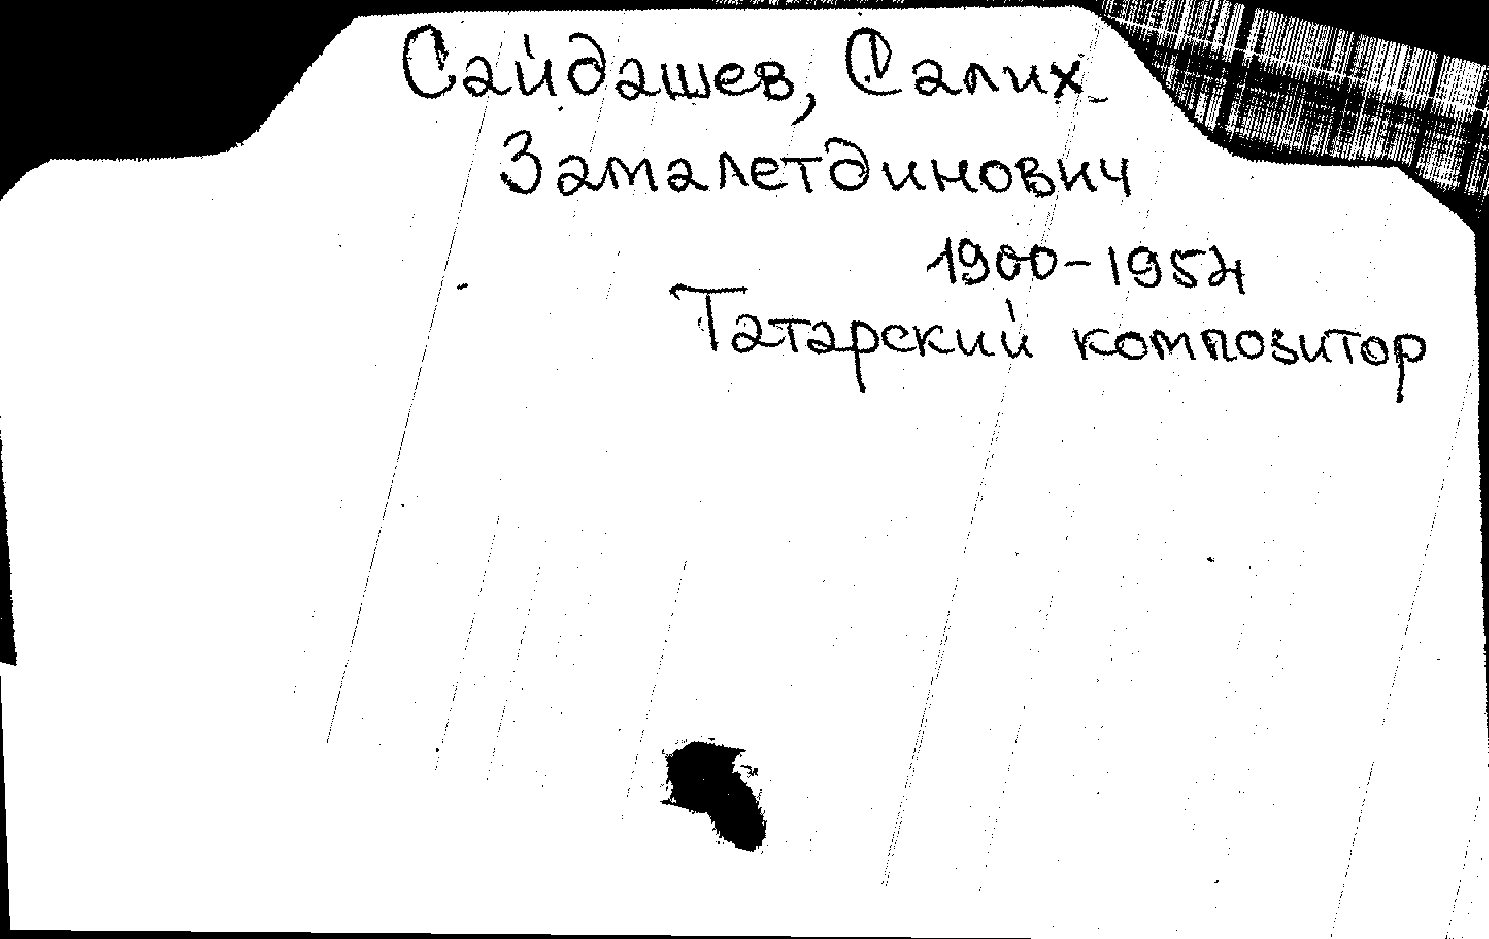 Сайдашев, Салих
Замалетдинович
1900-1954
Татарский композитор